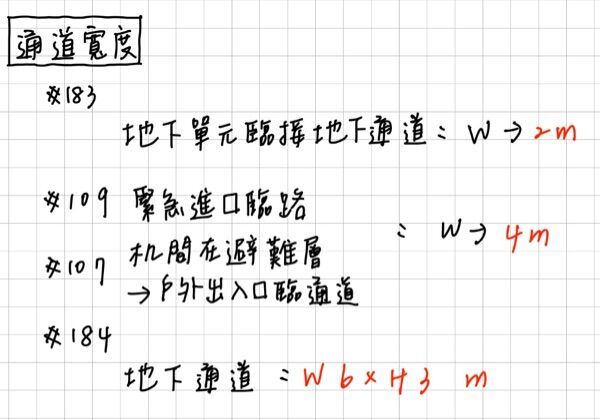 通道寬度
※183
地下單元臨接地下通道：W→2m
※109 緊急進口臨路
：W→4m
※107 机間在避難層
→戶外出入口臨通道
※184
地下通道：W6×H3 m